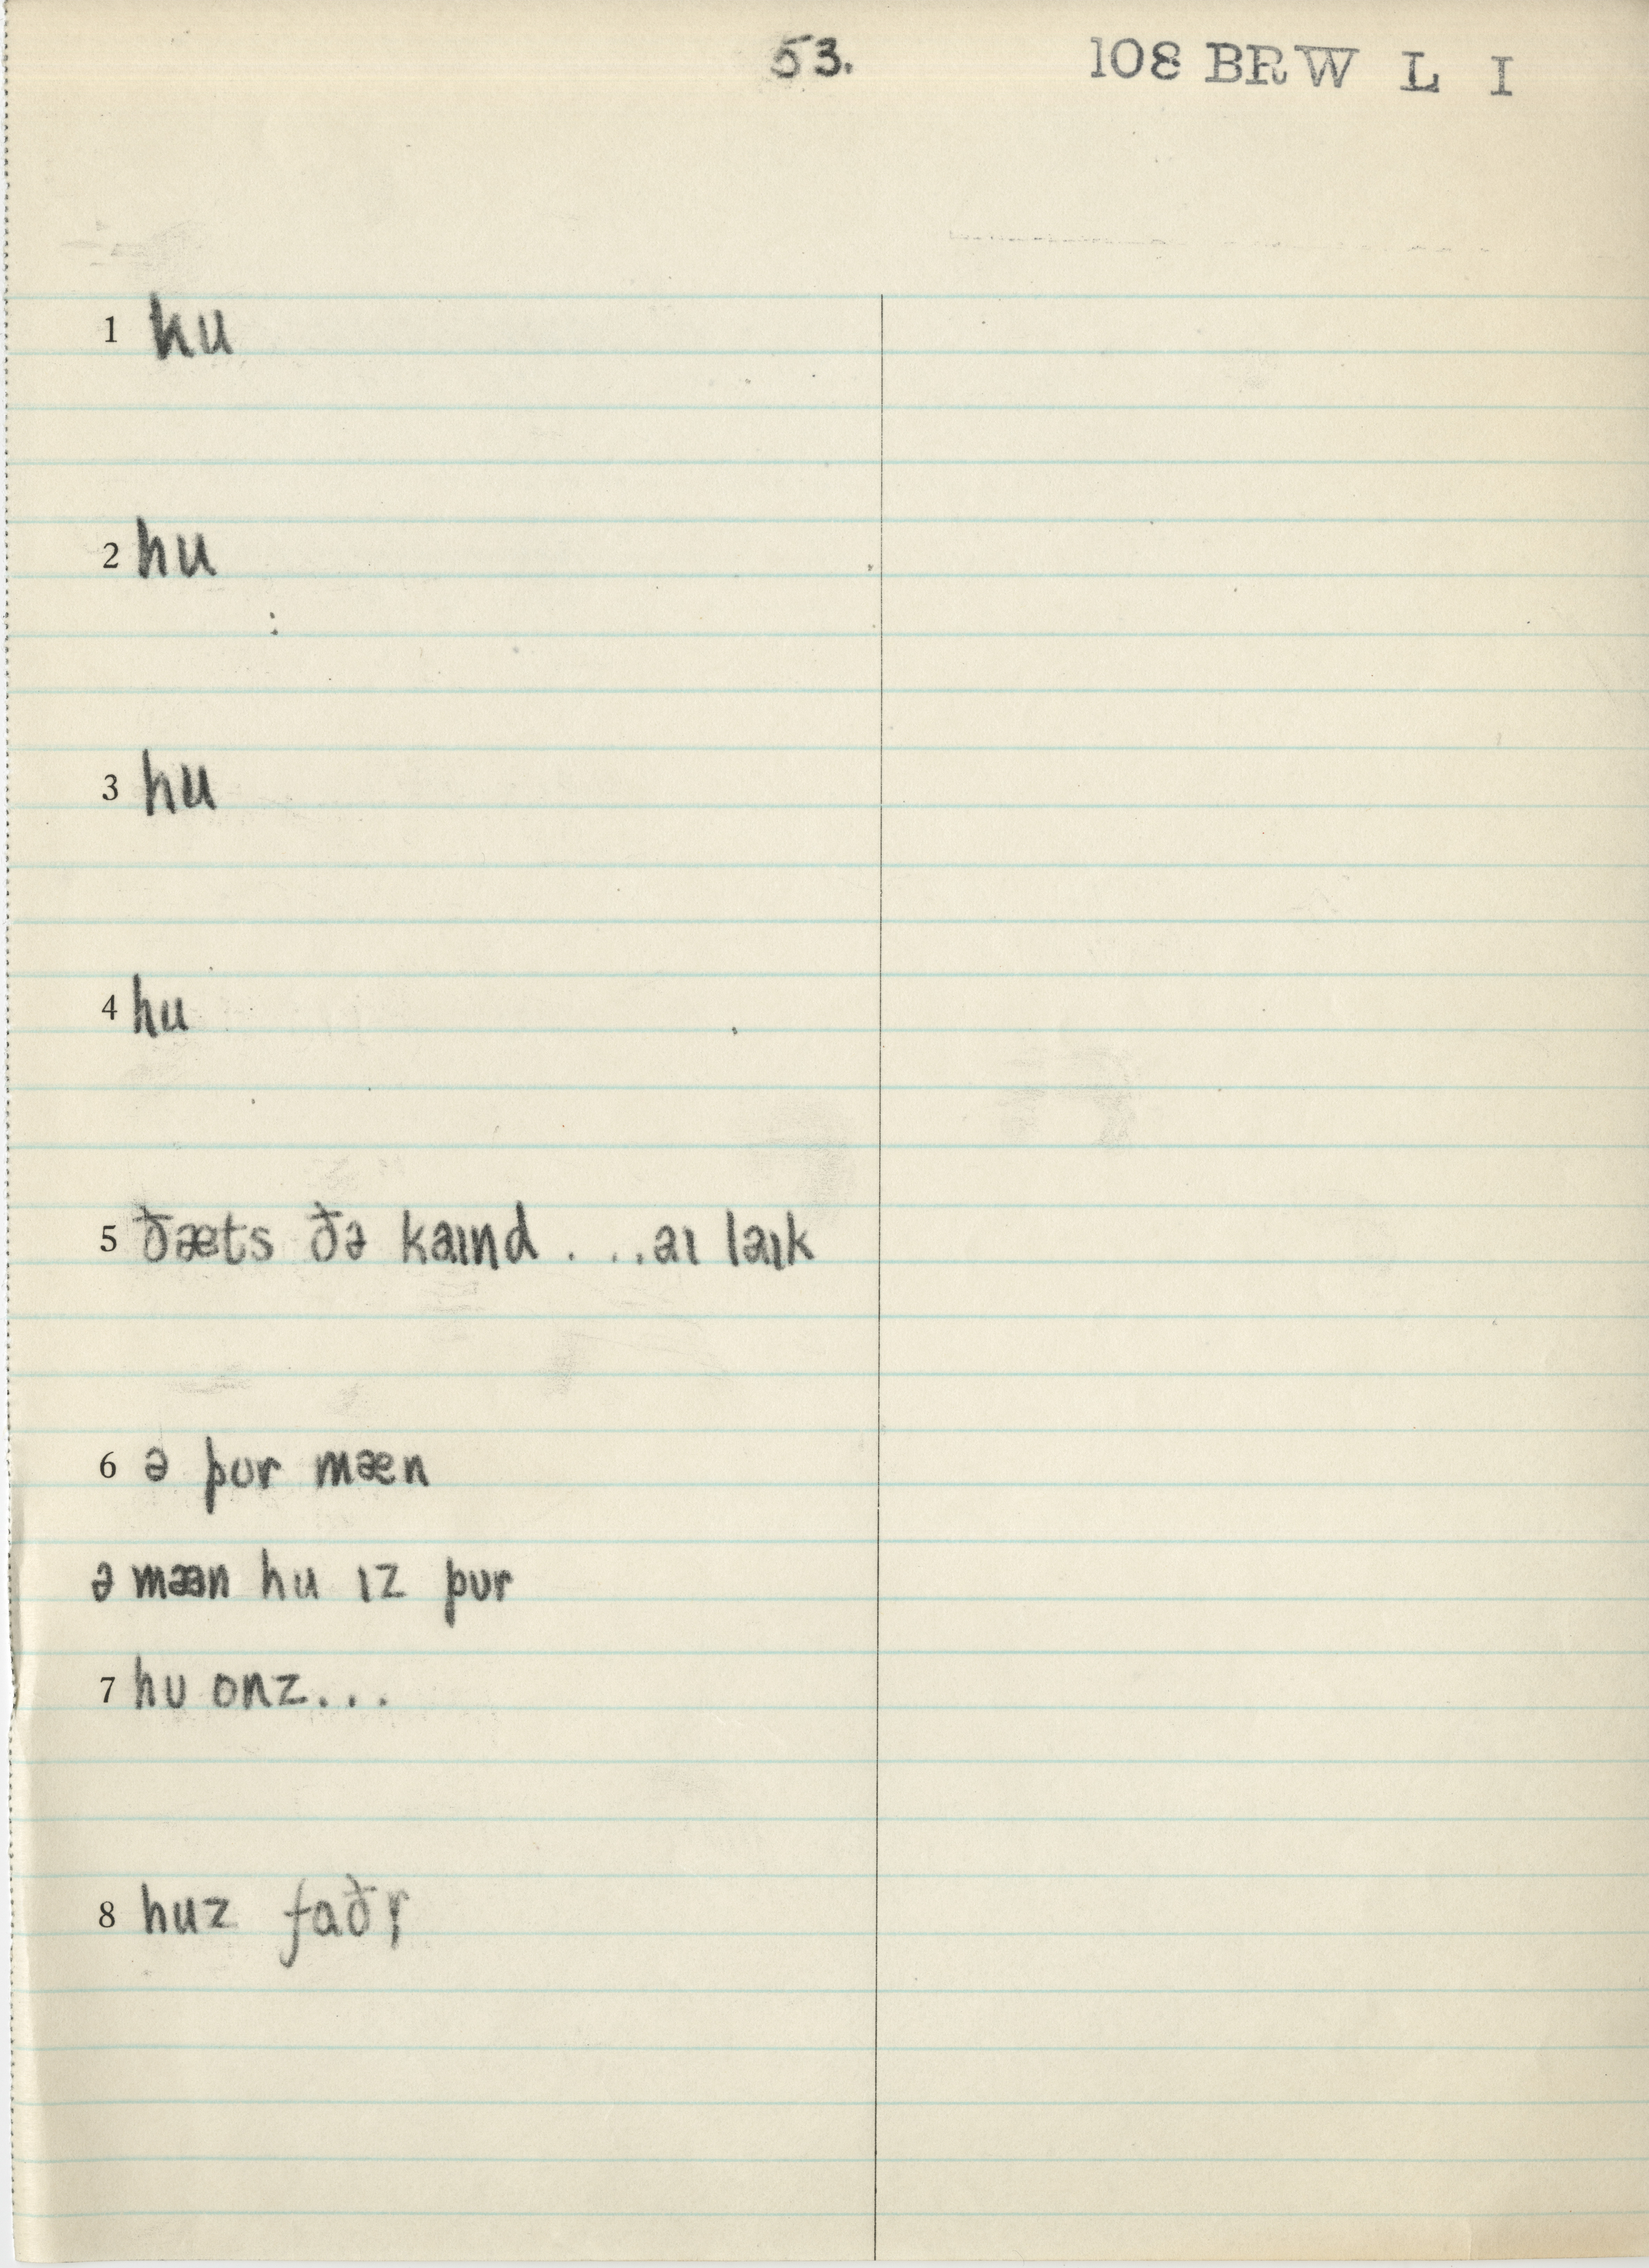 53. 108 BRW L I
1 hu
2 hu
3 hu
4 hu
5 ðæts ðə kaɪnd . ...aɪ laɪk
6 ə pur mæn
ə mæən hu ɪz pur
7 hu onz...
8 huz faðr̩